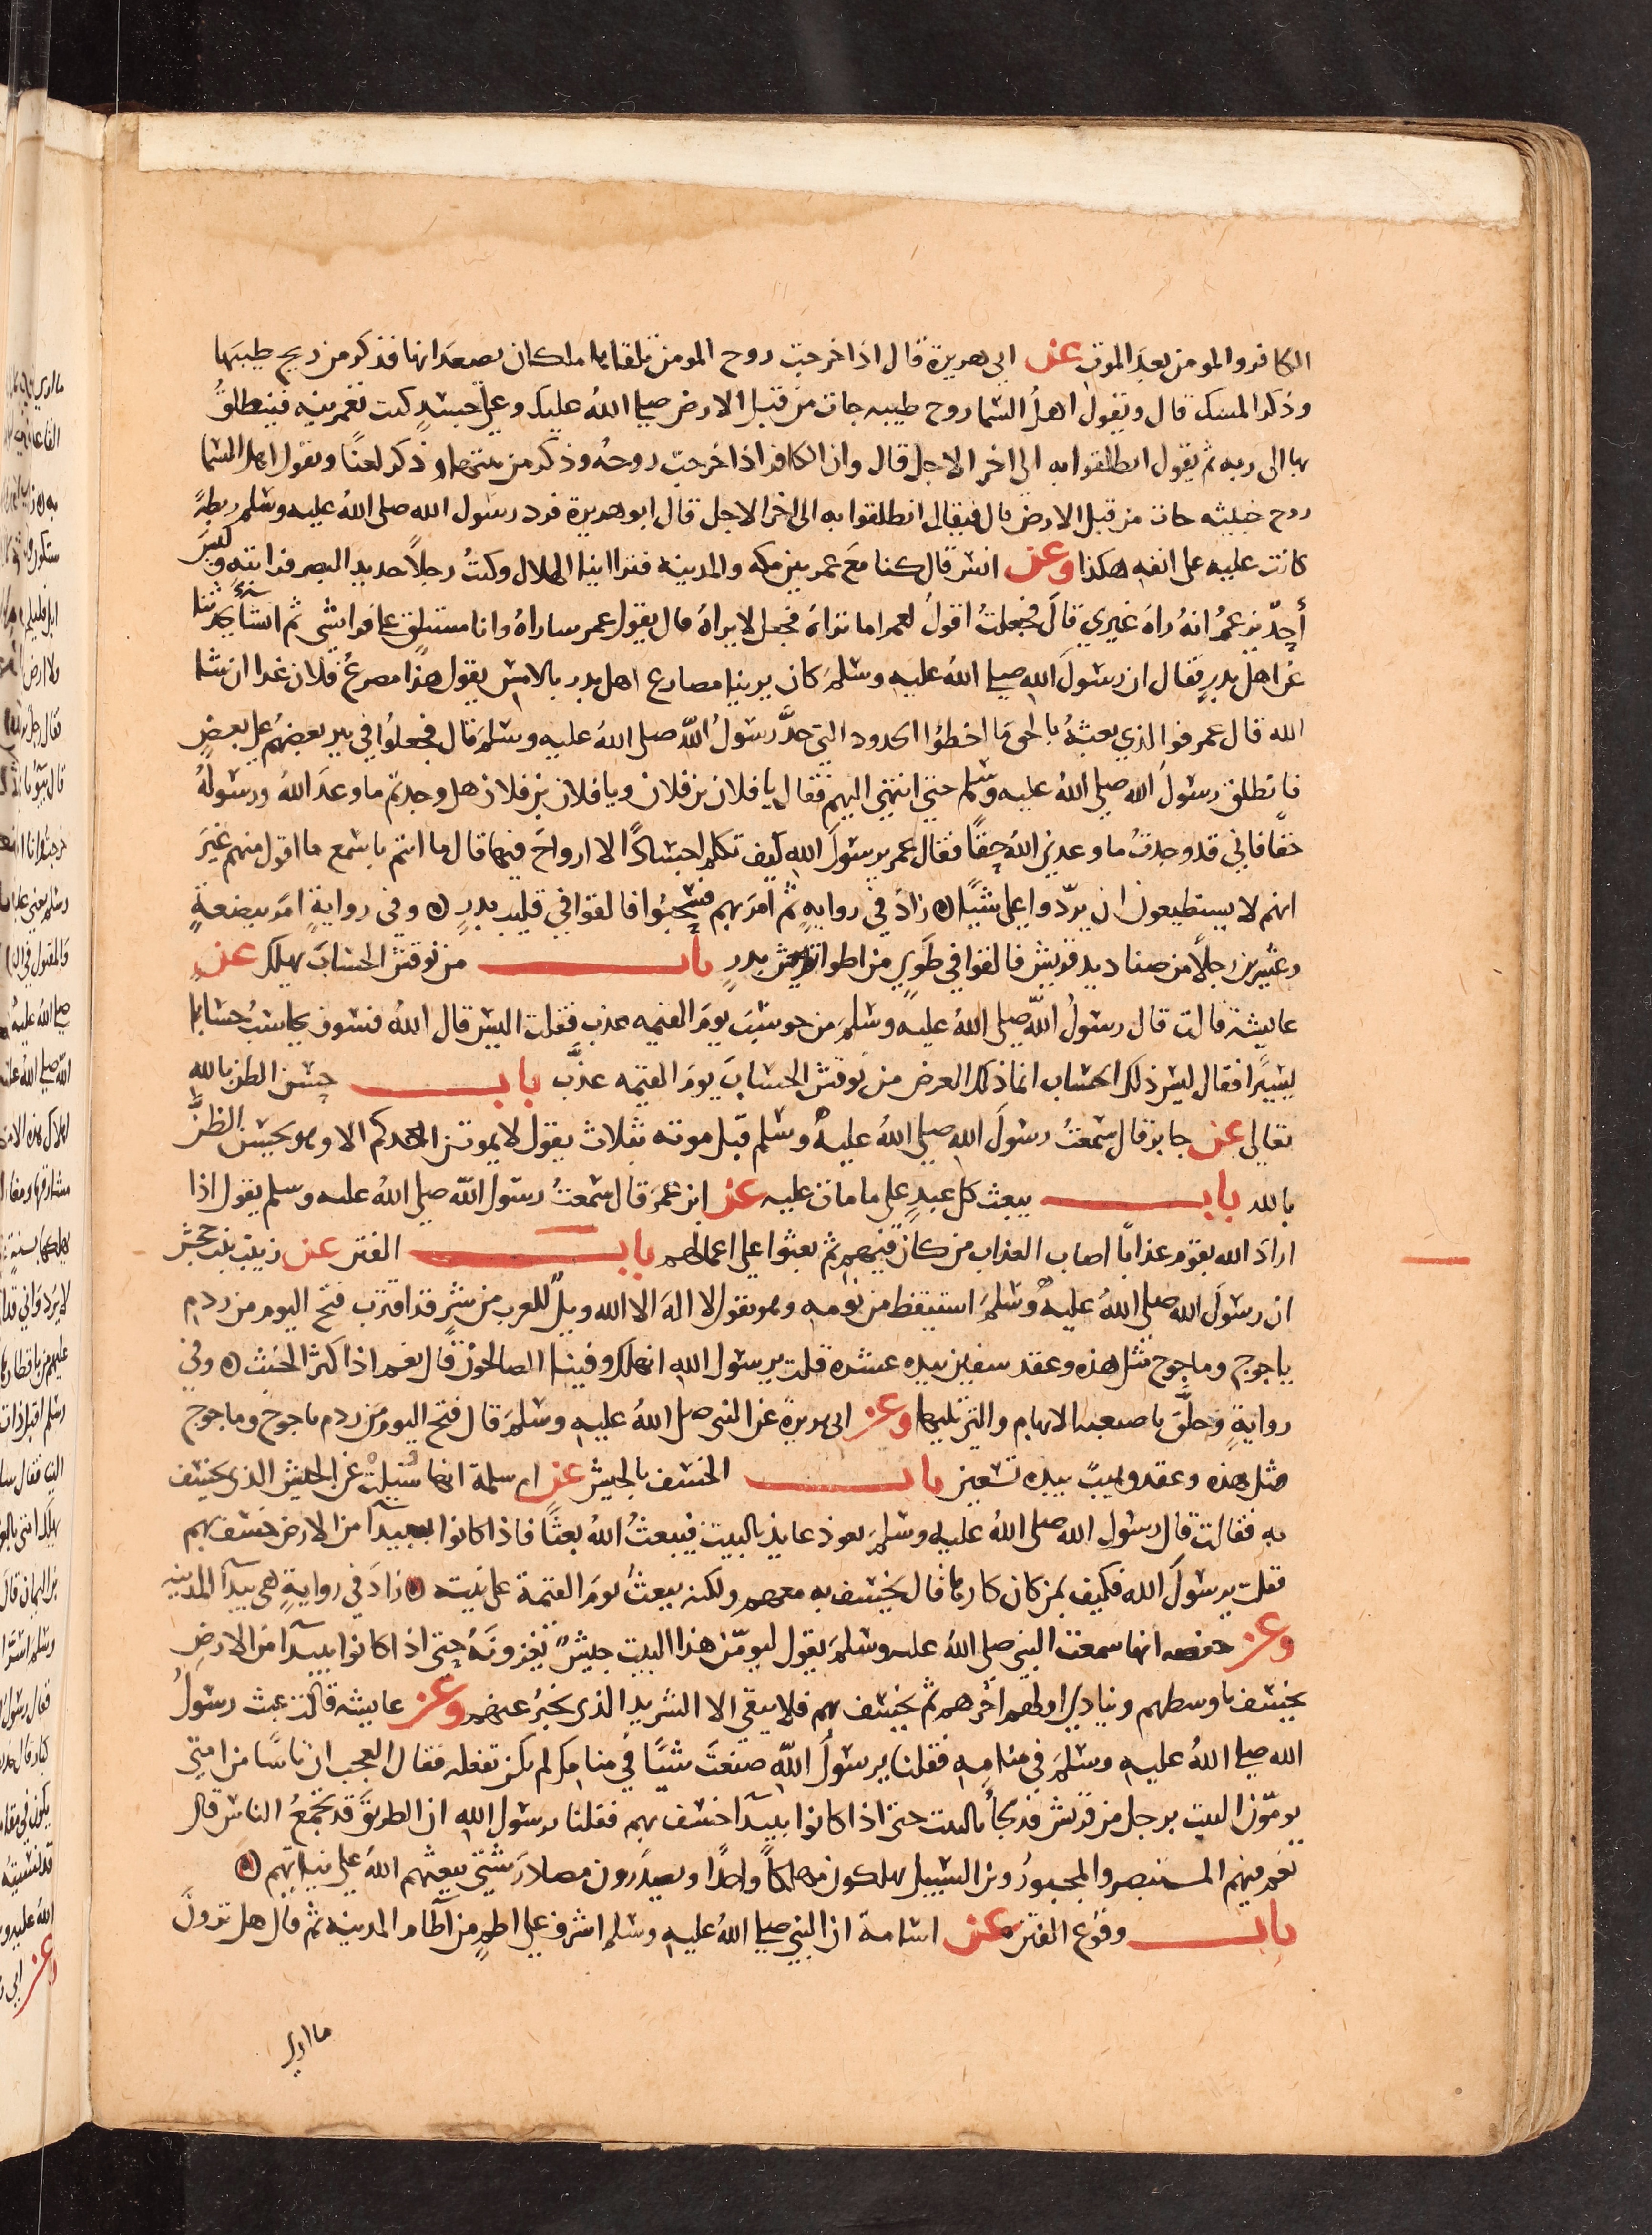 الكافر والمومن بعد الموت عن ابى هريرة قال اذا خرجت روح المومن تلقاها ملكان يصعدانها فذكر من ريح طيبها
وذكر المسك قال ويقول اهل السما روح طيبه جات من قبل الارض صلى الله عليك وعلى جسد كنت تعمرينه فينطلق
بها الى ربه ثم يقول انطلقوا به الى اخر الاجل قال وان الكافر اذا خرجت روحه وذكر من نتنها وذكر لعنا ويقول اهل السما
روح خبيثه جات من قبل الارض قال فيقال انطلقوا به الى اخر الاجل قال ابو هريرة فرد رسول الله صلى الله عليه وسلم ريطة
كانت عليه على انفه هكذا وعن انس قال كنا مع عمر بين مكه والمدينه فتراانيا الهلال وكنت رجلا حديد البصر فرايته وليس
أحد يزعم انه راه غيري قال فجعلت اقول لعمر اما تراه فجعل لا يراه قال يقول عمر ساراه وانا مستلق على فراشي ثم انشا يحدثنا
عن اهل بدر فقال ان رسول الله صلى الله عليه وسلم كان يرينا مصارع اهل بدر بالامس يقول هذا مصرع فلان غدا ان شا
الله قال عمر فوالذي بعثه بالحق ما اخطوا الحدود التي حد رسول الله صلى الله عليه وسلم قال فجعلوا في بير بعضهم على بعض
فانطلق رسول الله صلى الله عليه وسلم حتى انتهى اليهم فقال يا فلان بن فلان ويا فلان بن فلان هل وجدتم ما وعد الله ورسوله
حقا فاني قد وجدت ما وعدني الله حقا فقال عمر يرسول الله كيف تكلم اجسادا لا ارواح فيها قال ما انتم باسمع ما اقول منهم غير
انهم لا يستطيعون ان يردوا علي شيا زاد في روايه ثم امر بهم فسحبوا فالقوا في قليب بدر وفي رواية امر ببضعة
وعشرين رجلا من صناديد قريش فالقوا في طوي من اطوا بدر باب من نوقش الحساب يهلك عن
عايشة قالت قال رسول الله صلى الله عليه وسلم من حوسب يوم القيمه عذب فقلت اليس قال الله فسوف يحاسب حسابا
يسيرا فقال ليس ذلك الحساب انما ذلك العرض من نوقش الحساب يوم القيمه عذب باب حسن الظن بالله
تعالى عن جابر قال سمعت رسول الله صلى الله عليه وسلم قبل موته بثلاث يقول لا يموتن احدكم الا وهو يحسن الظن
بالله باب يبعث كل عبد على ما مات عليه عن ابن عمر قال سمعت رسول الله صلى الله عليه وسلم يقول اذا
اراد الله بقوم عذابا اصاب العذاب من كان فيهم ثم بعثوا على اعمالهم باب الفتن عن زينب بنت جحش
ان رسول الله صلى الله عليه وسلم استيقظ من نومه وهو يقول لا اله الا الله ويل للعرب من شر قد اقترب فتح اليوم من ردم
ياجوج وماجوج مثل هذه وعقد سفين بيده عشرة قلت يرسول الله انهلك وفينا الصالحون قال نعم اذا كثر الخبث وفي
رواية وحلق باصبعه الابهام والتي تليها وعن ابى هريرة عن النبى صلى الله عليه وسلم قال فتح اليوم من ردم ياجوج وماجوج
مثل هذه وعقد وهيب بيده تسعين باب الخسف بالجيش عن ام سلمة انها سئيلت عن الجيش الذى يخسف
به فقالت قال رسول الله صلى الله عليه وسلم يعوذ عايذ بالبيت فيبعث الله بعثا فاذا كانوا ببيدآ من الارض خسف بهم
فقلت يرسول الله فكيف بمن كان كارها قال يخسف به معهم ولكنه يبعث يوم القيمة على نيته زاد في رواية هى بيدآ المدينه
وعن حفصه انها سمعت النبى صلى الله عليه وسلم يقول ليومن هذا البيت جيش يغزونه حتى اذا كانوا ببيدآ من الارض
يخسف باوسطهم وينادي اولهم اخرهم ثم يخسف بهم فلا يبقى الا الشريد الذى يخبر عنهم وعن عايشه قالت عبث رسول
الله صلى الله عليه وسلم في منامه فقلنا يرسول الله صنعت شيا في منامك لم تكن تفعله فقال العجب ان ناسا من امتي
يومون البيت برجل من قريش قد لجأ بالبيت حتى اذا كانوا ببيدآ خسف بهم فقلنا يرسول الله ان الطريق قد تجمع الناس قال
نعم فيهم المستبصر والمجبور وبن السبيل يهلكون مهلكا واحدا ويصدرون مصادر شتى يبعثهم الله على نياتهم
باب وقوع الفتن عن اسامة ان النبي صلى الله عليه وسلم اشرف على اطم من آطام المدينه ثم قال هل ترون
ما ارى